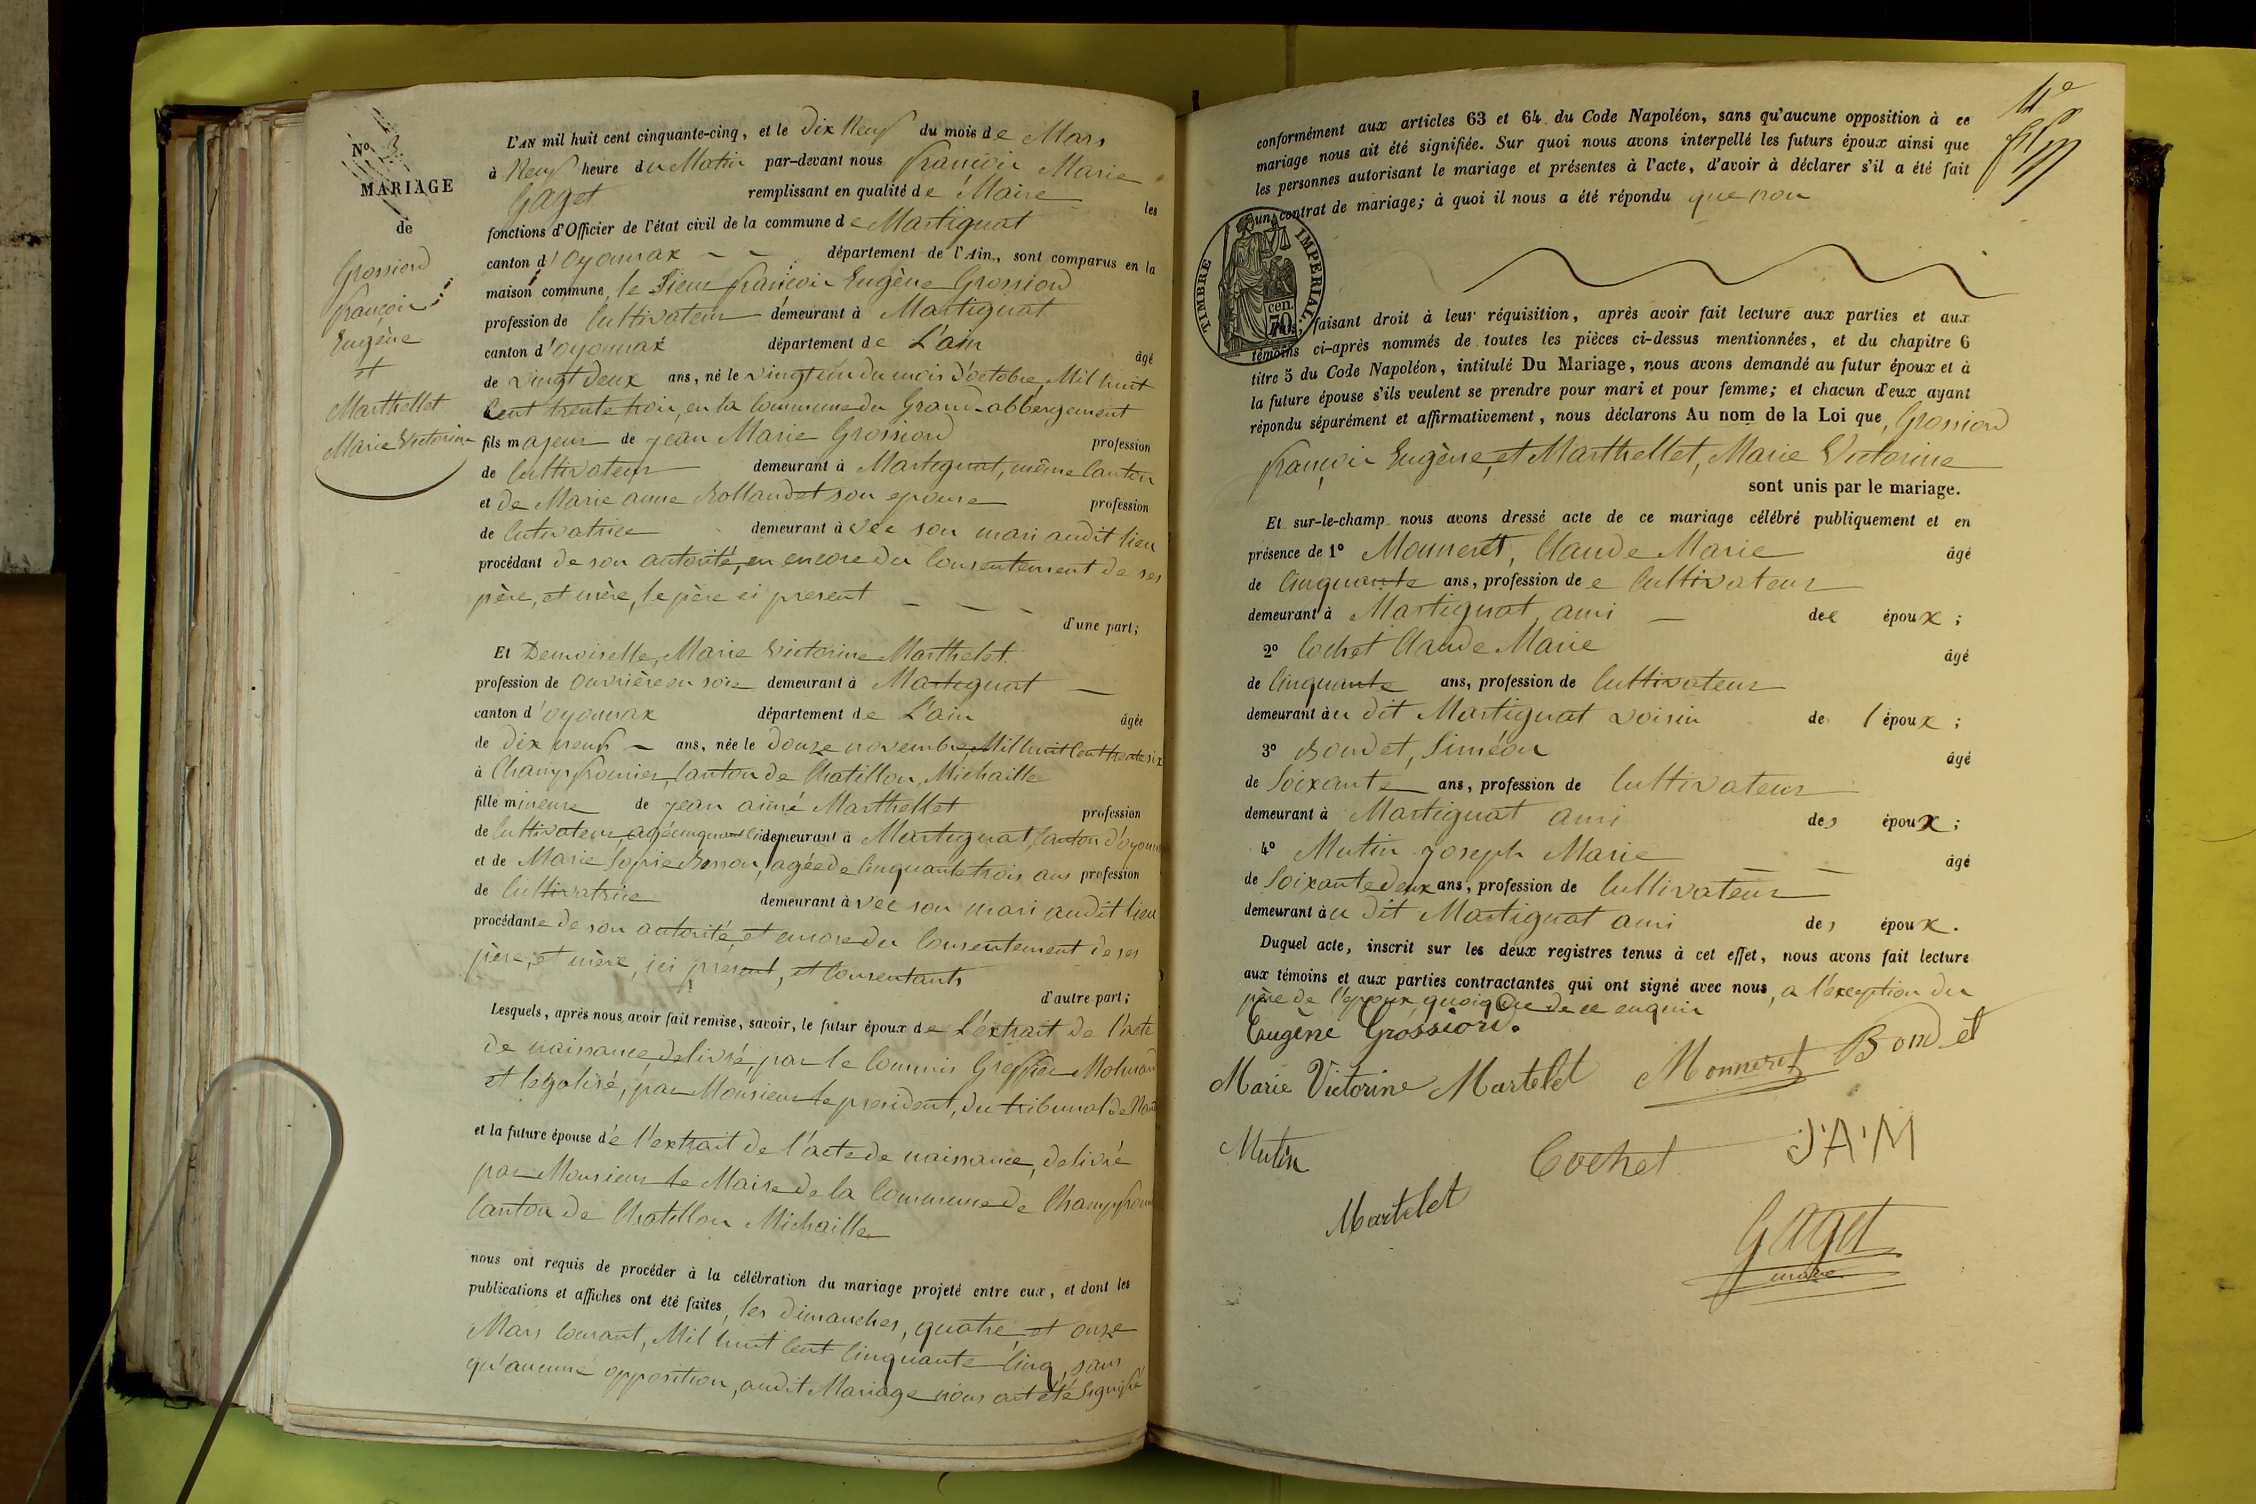 N° 3
MARIAGE
de
Grossiord
françois
Eugène
et
Marthellet
Marie Victorine
L'AN mil huit cent cinquante-cinq, et le dix Neuf du mois de Mars
à Neuf heure du Matin par-devant nous françois Marie
Gaget remplissant en qualité de Maire les
fonctions d'Officier de l'état civil de la commune de Martignat
canton d'Oyonnax département de l'Ain, sont comparus en la
maison commune le Sieur françois Eugène Grossiord
profession de Cultivateur demeurant à Martignat
canton d'oyonnax département de L'ain âgé
de vingt deux ans, né le vingt un du mois d'octobre Mil huit
Cent trente trois, en la Commune du Grand-abbergement
fils majeur de jean Marie Grossiord profession
de Cultivateur demeurant à Martignat, même Canton
et de Marie anne Rollandet son epouse profession
de Cutivatrice demeurant à vec son mari audit lieu
procédant de son autorité, en encore du Consentement de ses
père, et mère, le père ici present
d'une part;
Et Demoiselle, Marie Victorine Marthelet
profession de ouvrière en soie demeurant à Martignat
canton d'oyonnax département de L'ain âgée
de dix neuf ans, née le douze novembre, Mil huit Cent trente six
à Champfromier, Canton de Chatillon Michaille
fille mineure de jean aimé Marthellet profession
de Cultivateur agé cinquante demeurant à Martignat, Canton d'oyonnax
et de Marie Sopie Bosson, agée de Cinquante trois ans profession
de Cultivatrice demeurant à vec son mari audit lieu
procédante de son autorité, et encore du Consentement de ses
père, et mère, ici present, et Consentants
d'autre part;
Lesquels, après nous avoir fait remise, savoir, le futur époux de L'extrait de l'acte
de naissance, delivré, par le Commis Greffier Molinard
et legalisé, par Monsieur le president, du tribunal de Nantua
et la future épouse de l'extrait de l'acte de naissance, delivré
par Monsieur le Maire de la Commune de Champfromier
Canton de Chatillon Michaille
nous ont requis de procéder à la célébration du mariage projeté entre eux, et dont les
publications et affiches ont été faites, les dimanches, quatre, et onze
Mars Courant, Mil huit Cent Cinquante Cinq, sans
qu'aucune opposition, audit Mariage nous ait été Signifié
conformément aux articles 63 et 64 du Code Napoléon, sans qu'aucune opposition à ce
mariage nous ait été signifiée. Sur quoi nous avons interpellé les futurs époux ainsi que
les personnes autorisant le mariage et présentes à l'acte, d'avoir à déclarer s'il a été fait
un contrat de mariage; à quoi il nous a été répondu que non
TIMBRE IMPERIAL
70 cen.
faisant droit à leur réquisition, après avoir fait lecture aux parties et aux
témoins ci-après nommés de toutes les pièces ci-dessus mentionnées, et du chapitre 6
titre 5 du Code Napoléon, intitulé Du Mariage, nous avons demandé au futur époux et à
la future épouse s'ils veulent se prendre pour mari et pour femme; et chacun d'eux ayant
répondu séparément et affirmativement, nous déclarons Au nom de la Loi que, Grossiord
françois Eugène, et Marthellet, Marie Victorine
sont unis par le mariage.
Et sur-le-champ nous avons dressé acte de ce mariage célébré publiquement et en
présence de 1° Monneret, Claude Marie âgé
de Cinquante ans, profession de e Cultivateur
demeurant à Martignat ami de époux;
2° Cochet Claude Marie âgé
de Cinquante ans, profession de Cultivateur
demeurant àu dit Martignat voisin de l'époux;
3° Bondet, Siméon âgé
de Soixante ans, profession de Cultivateur
demeurant à Martignat ami des époux;
4° Mutin joseph Marie âgé
de Soixante deux ans, profession de Cultivateur
demeurant àu dit Martignat ami des époux.
Duquel acte, inscrit sur les deux registres tenus à cet effet, nous avons fait lecture
aux témoins et aux parties contractantes qui ont signé avec nous, a l'exception du
père de l'epoux, quoique de ce enquis
Eugène Grossiord.
Marie Victorine Martelet Monneret Bondet
Mutin Cochet J'A'M
Martelet
Gaget
maire